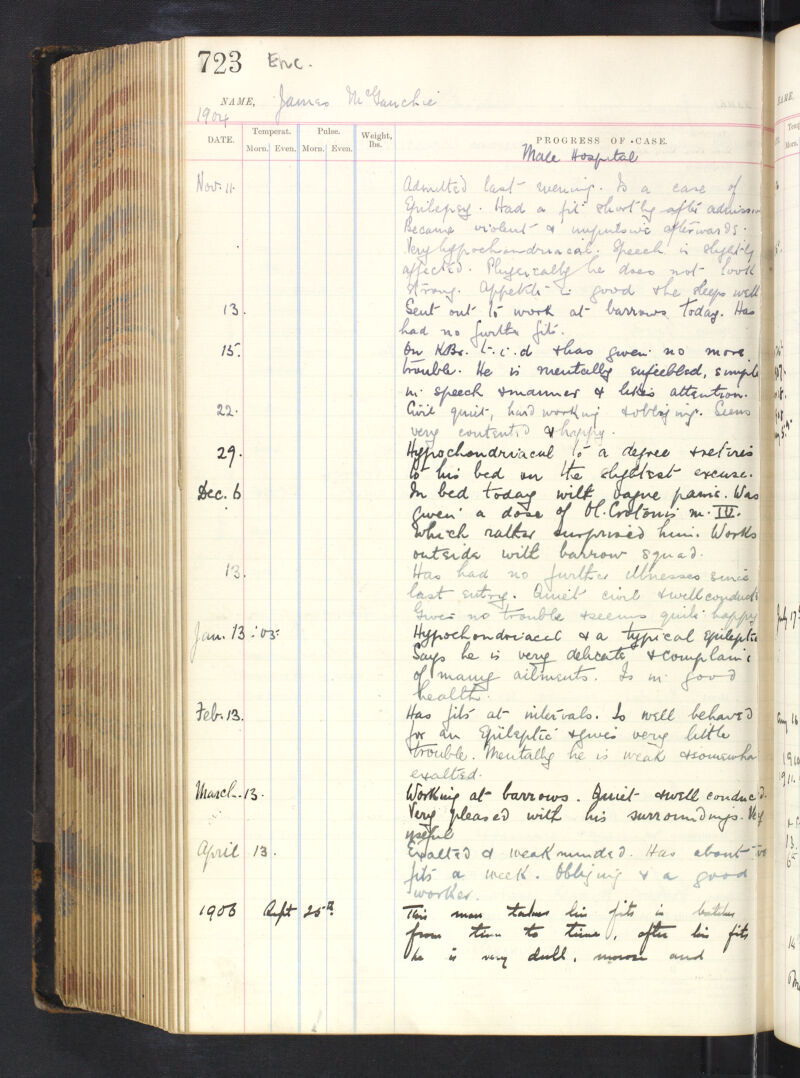 723 Enc.
NAME, James McGauchie
1904
DATE. Temperat. Pulse. Weight, lbs. PROGRESS OF CASE.
Morn. Even. Morn. Even.
Male Hospital
Nov. 11. Admitted last evening. Is a case of
Epilepsy. Had a fit shortly after admission
Became violent & impulsive afterwards.
Very hypochondriacal. Speech is slightly
affected. Physically he does not look
strong. Appetite is good & he sleeps well
13. Sent out to work at barrows today. Has
had no further fits.
15. On K.Br. t.i.d & has given no more
trouble. He is mentally enfeebled, simple
in speech & manner & likes attention.
22. Civil quiet, hard working & obliging. Seems
very contented & happy.
29. Hypochondriacal to a degree & retires
to his bed on the slightest excuse.
Dec. 6 In bed today with vague pains. Was
given a dose of Ol. Crotonis m. IV.
which rather surprised him. Works
outside with barrow squad.
13. Has had no further illnesses since
last entry. Quiet civil & well conducted
Gives no trouble & seems quite happy
Jan. 13 : 05 Hypochondriacal & a typical Epileptic
Says he is very delicate & complains
of many ailments. Is in good
health.
Feb. 13. Has fits at intervals. Is well behaved
for an Epileptic & gives very little
trouble. Mentally he is weak & somewhat
exalted.
March. 13. Working at barrows. Quiet & well conducted.
Very pleased with his surroundings. Very
useful
April 13. Exalted & weakminded. Has about
fits a week. Obliging & a good
worker.
1906 Sept 25th. This man takes his fits in batches
from time to time, after his fits
he is very dull, morose and